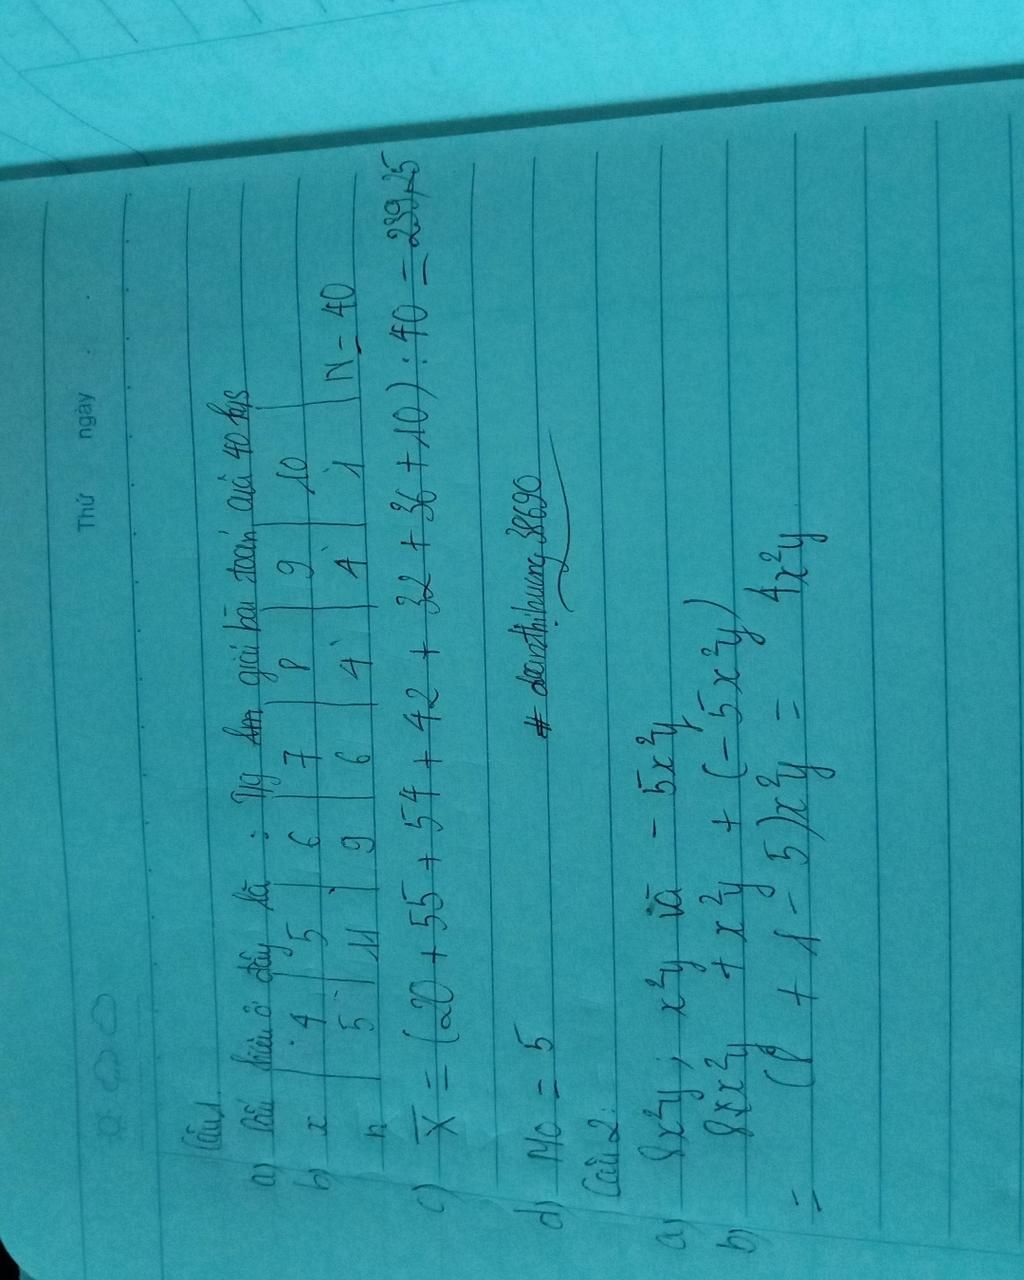 Thứ ngày
Câu 1.
a) Dấu hiệu ở đây là : Tg giải bài toán của 40 hs
b) x 4 5 6 7 8 9 10
n 5 11 9 6 4 4 1 N = 40
c) X̄ = (20 + 55 + 54 + 42 + 32 + 36 + 10) : 40 = 239,25
d) M0 = 5
# doanthihuong38690
Câu 2:
a) 8x²y ; x²y và - 5x²y
b) 8x²y + x²y + (- 5x²y)
= (8 + 1 - 5)x²y = 4x²y